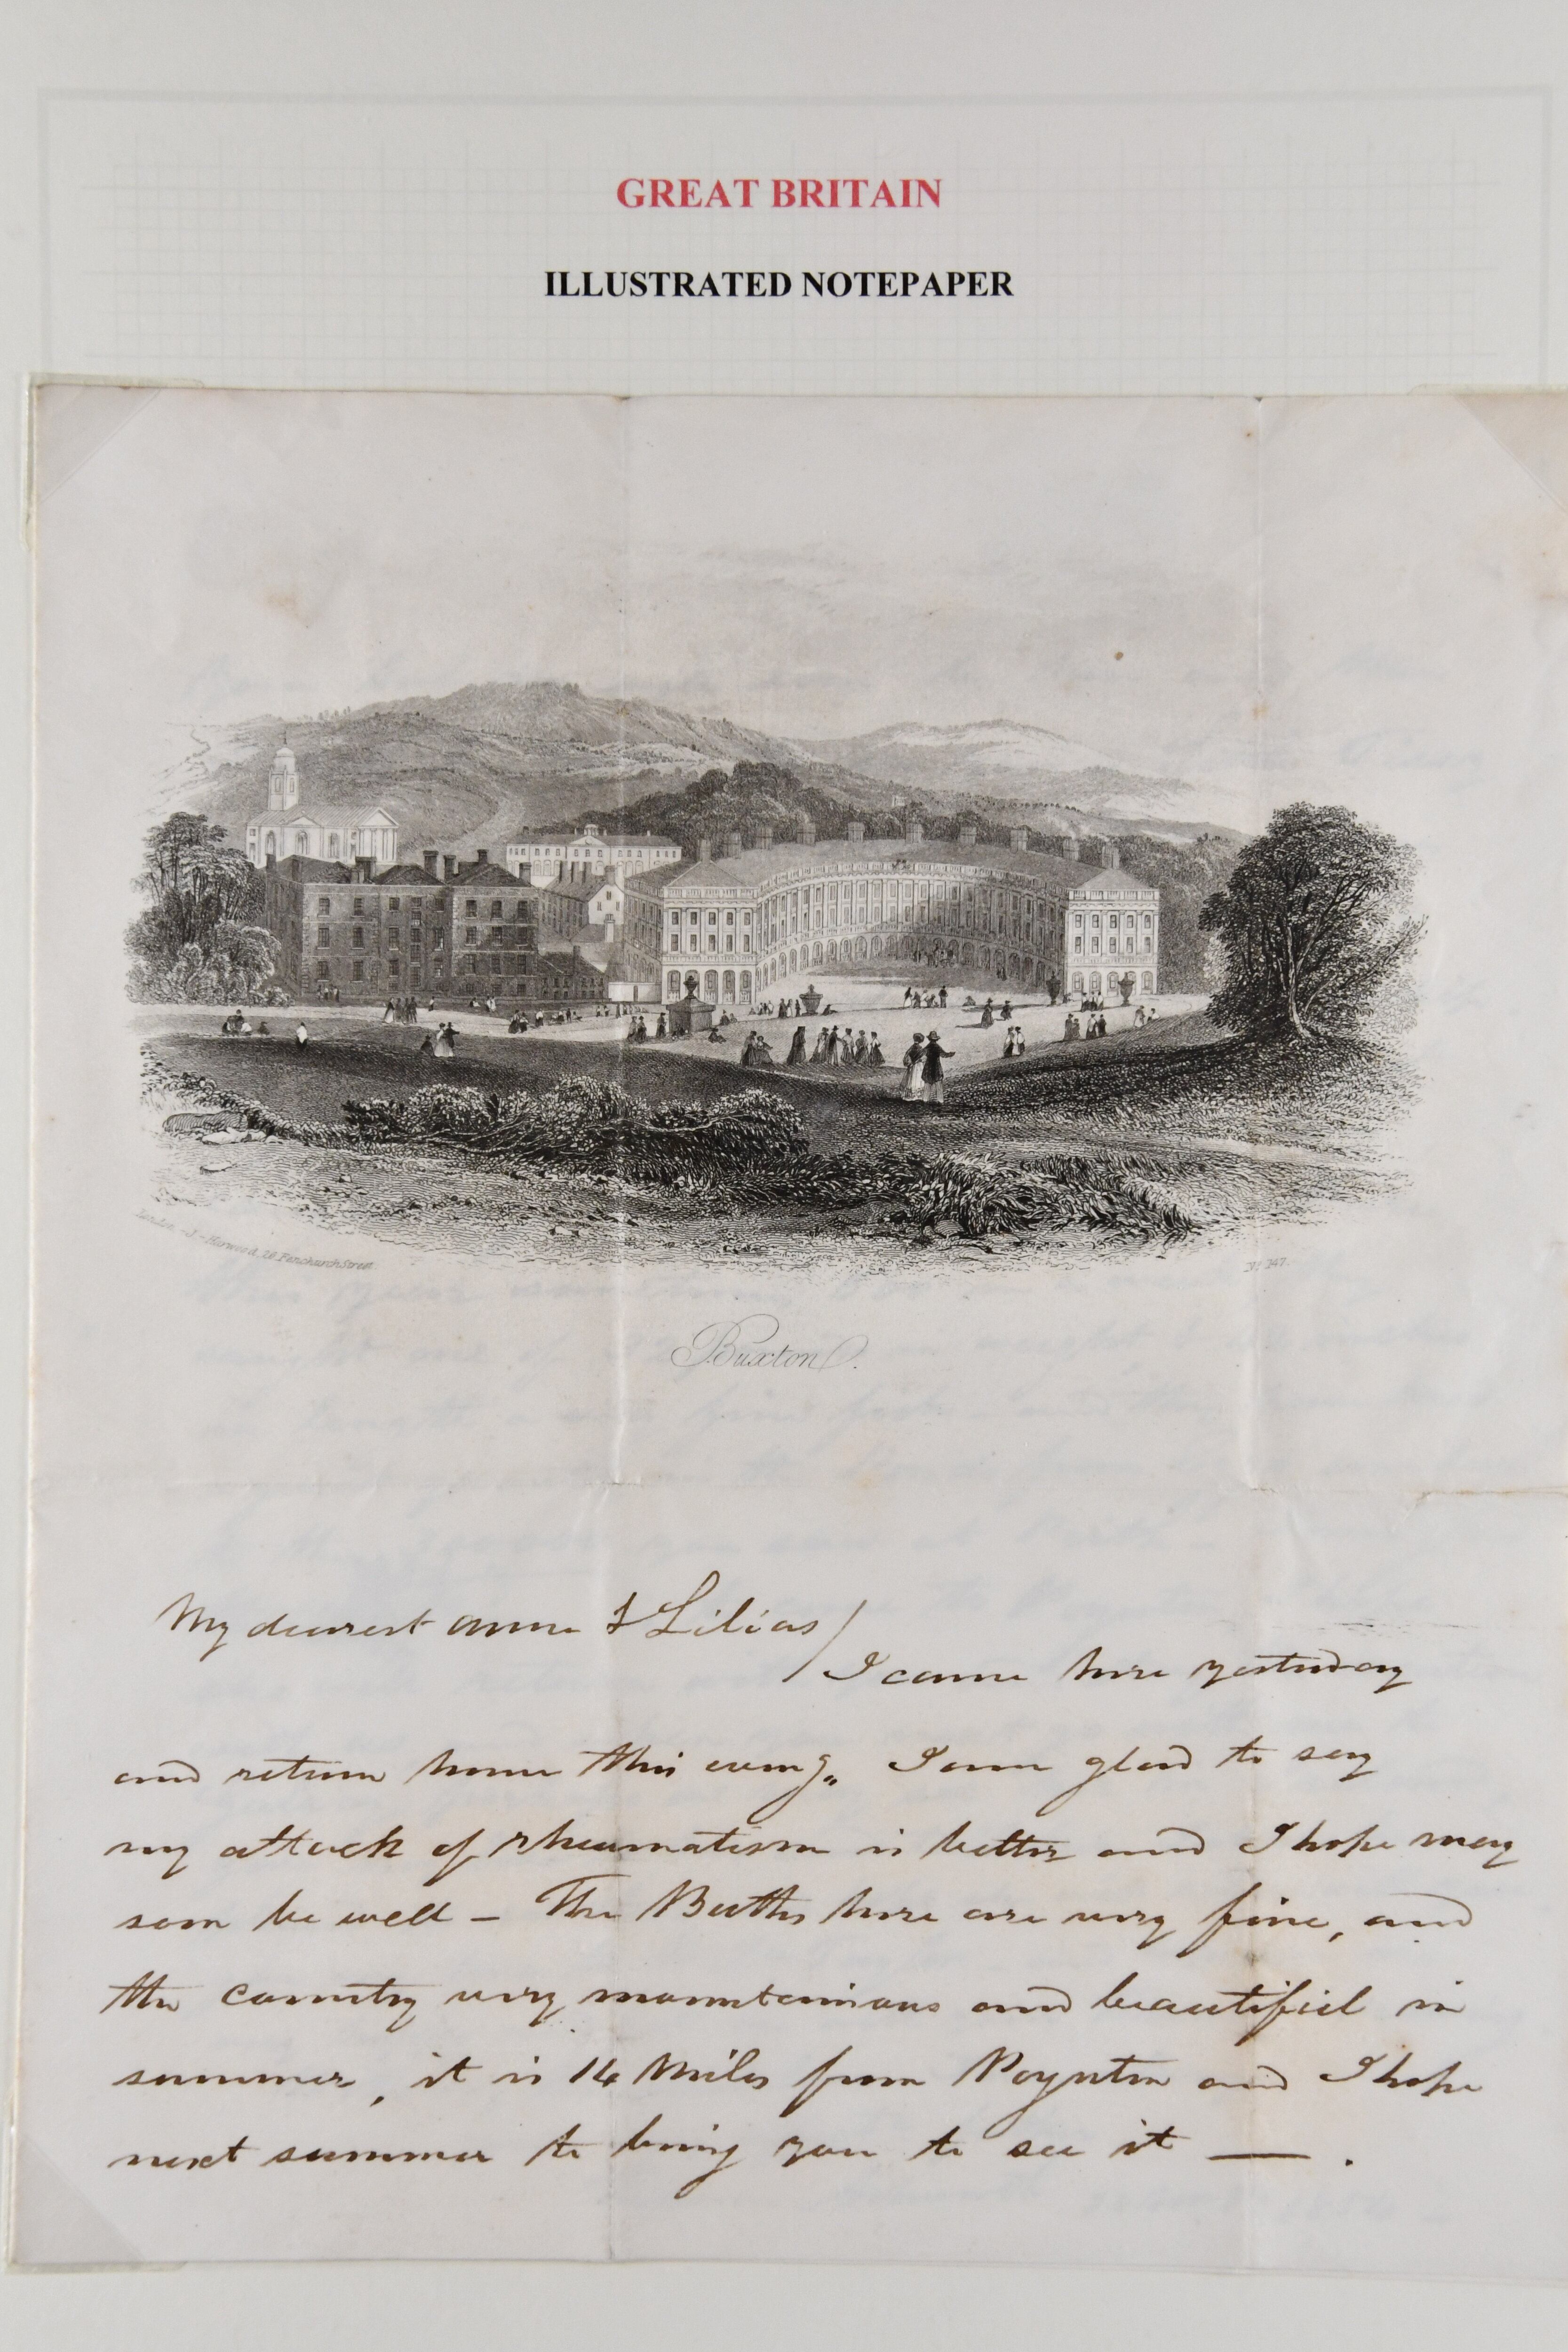 GREAT BRITAIN
ILLUSTRATED NOTEPAPER
London. - J. Harwood, 26 Fenchurch Street.
No. 147.
Buxton.
My dearest Anne & Lilias/
I came here yesterday
and return home this eveng. I am glad to say
my attack of rheumatism is better and I hope may
soon be well – The Baths here are very fine, and
the country very mountainous and beautiful in
summer, it is 14 Miles from Poynton and I hope
next summer to bring you to see it — .